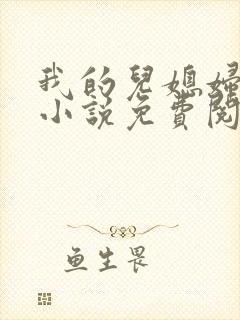 我的兒媳婦
小説免費閱
鱼生畏